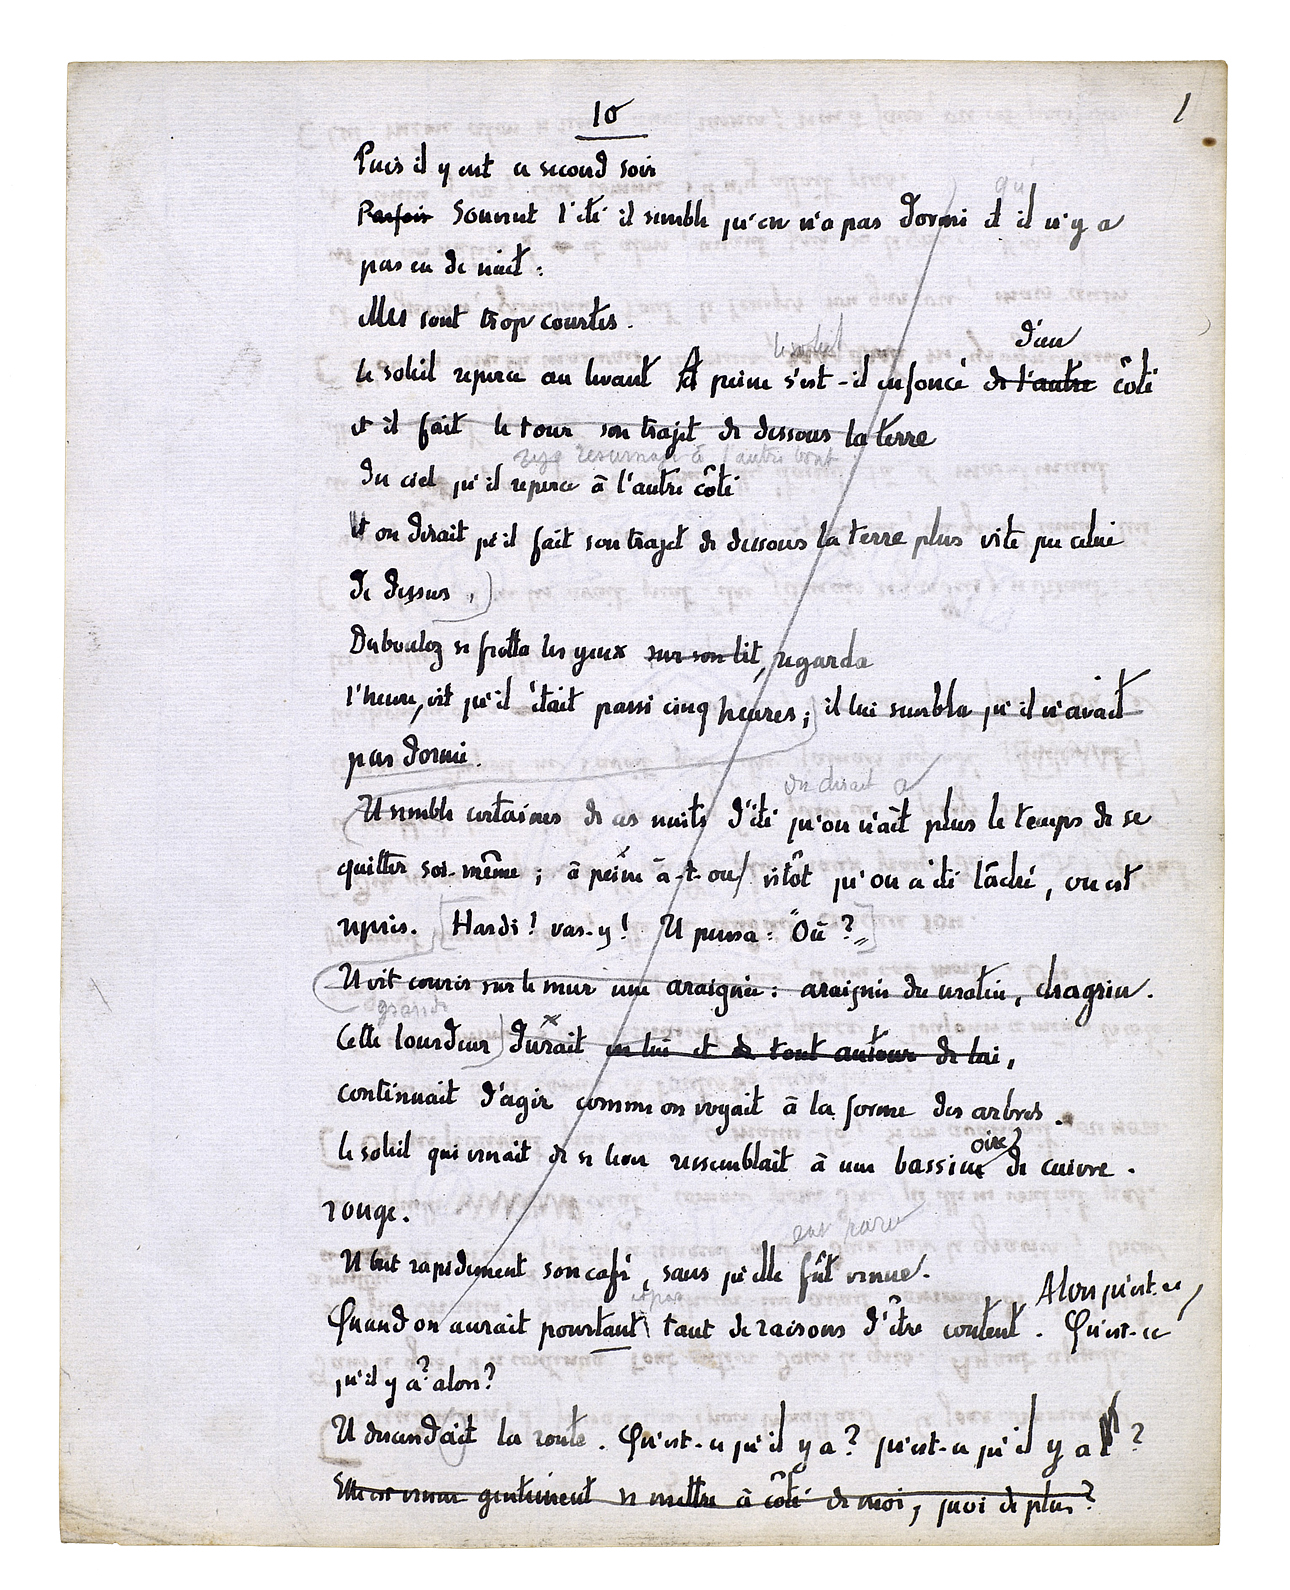 10
1
Puis il y eut ce second soir
qui
Parfois Souvent l'été il semble qu'on n'a pas dormi et il n'y a
pas eu de nuit :
elles sont trop courtes.
le soleil d'un
le soleil reperce au levant A peine s'est-il enfoncé de l'autre côté
et il fait le tour son trajet de dessous la terre
resurnage à l'autre bout
du ciel qu'il reperce à l'autre côté
et on dirait qu'il fait son trajet de dessous la terre plus vite que celui
de dessus.)
Duboulez se frotta les yeux sur son lit, regarda
l'heure, vit qu'il était passé cinq heures ; il lui sembla qu'il n'avait
pas dormi.
on dirait a
Il semble certaines de ces nuits d'été qu'on n'ait plus le temps de se
quitter soi-même ; à peine a-t-on / vitôt qu'on a été lâché, on est
repris. [Hardi ! vas-y ! Il pensa : "Où ?"]
(Il vit courir sur le mur une araignée : araignée du matin, chagrin.
grande
Cette lourdeur) durait en lui et de tout autour de lui,
continuait d'agir comme on voyait à la forme des arbres.
oire?
le soleil qui venait de se lever ressemblait à une bassine de cuivre.
rouge.
eut paru
Il but rapidement son café, sans qu'elle fût venue.
et pas Alors qu'est-ce
Quand on aurait pourtant tant de raisons d'être content. Qu'est-ce
qu'il y a? alors?
Il descendait la route. Qu'est-ce qu'il y a? qu'est-ce qu'il y a ?
Elle est venue gentiment se mettre à côté de moi, quoi de plus?